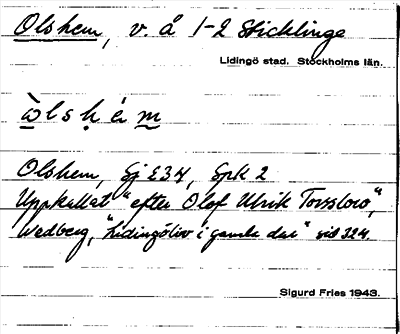 Olshem, v. å 1-2 Sticklinge
Lidingö stad. Stockholms län.
ὼl s ḥ é m
Olshem, Sj E34, Spk 2
Uppkallat "efter Olof Ulrik Torsslow",
Wedberg, "Lidingöliv i gamla dar" sid 324.
Sigurd Fries 1943.